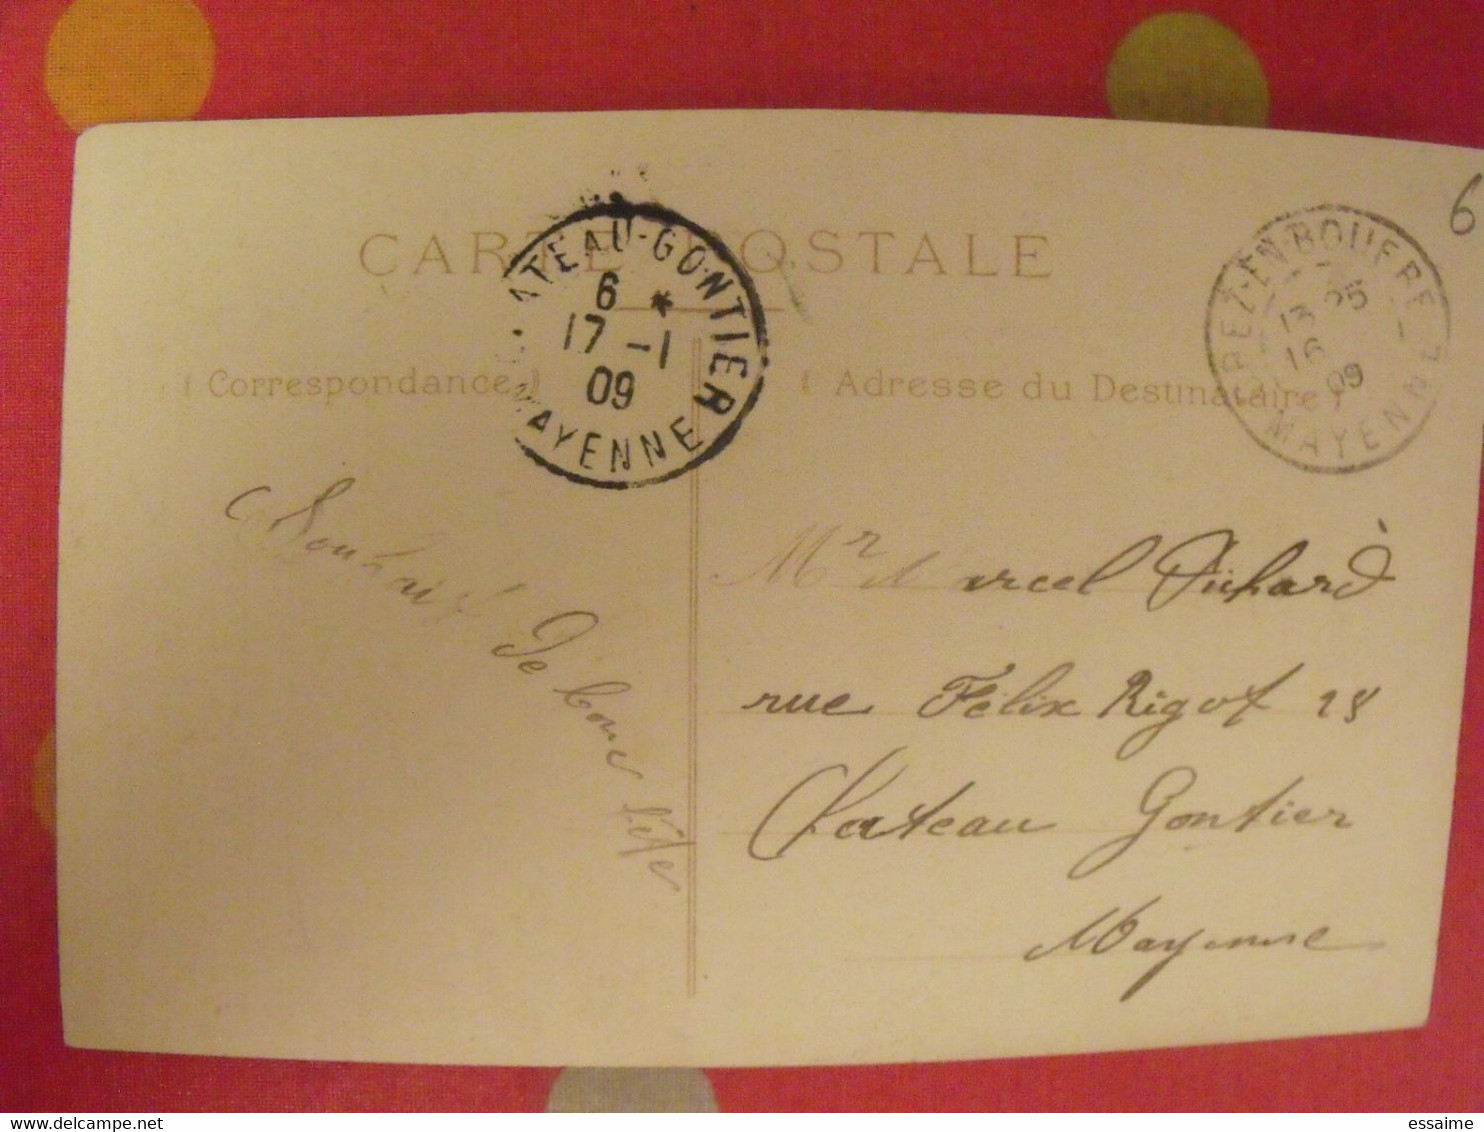 CARTE POSTALE
6
CHATEAU-GONTIER
6 *
17 -1
09
MAYENNE
GREZ-EN-BOUERE
13 25
16
09
MAYENNE
( Correspondance )
( Adresse du Destinataire )
Souhait De bonne fête
Mr Marcel
rue Félix Rigot 18
Chateau Gontier
Mayenne
www.delcampe.net
essaime